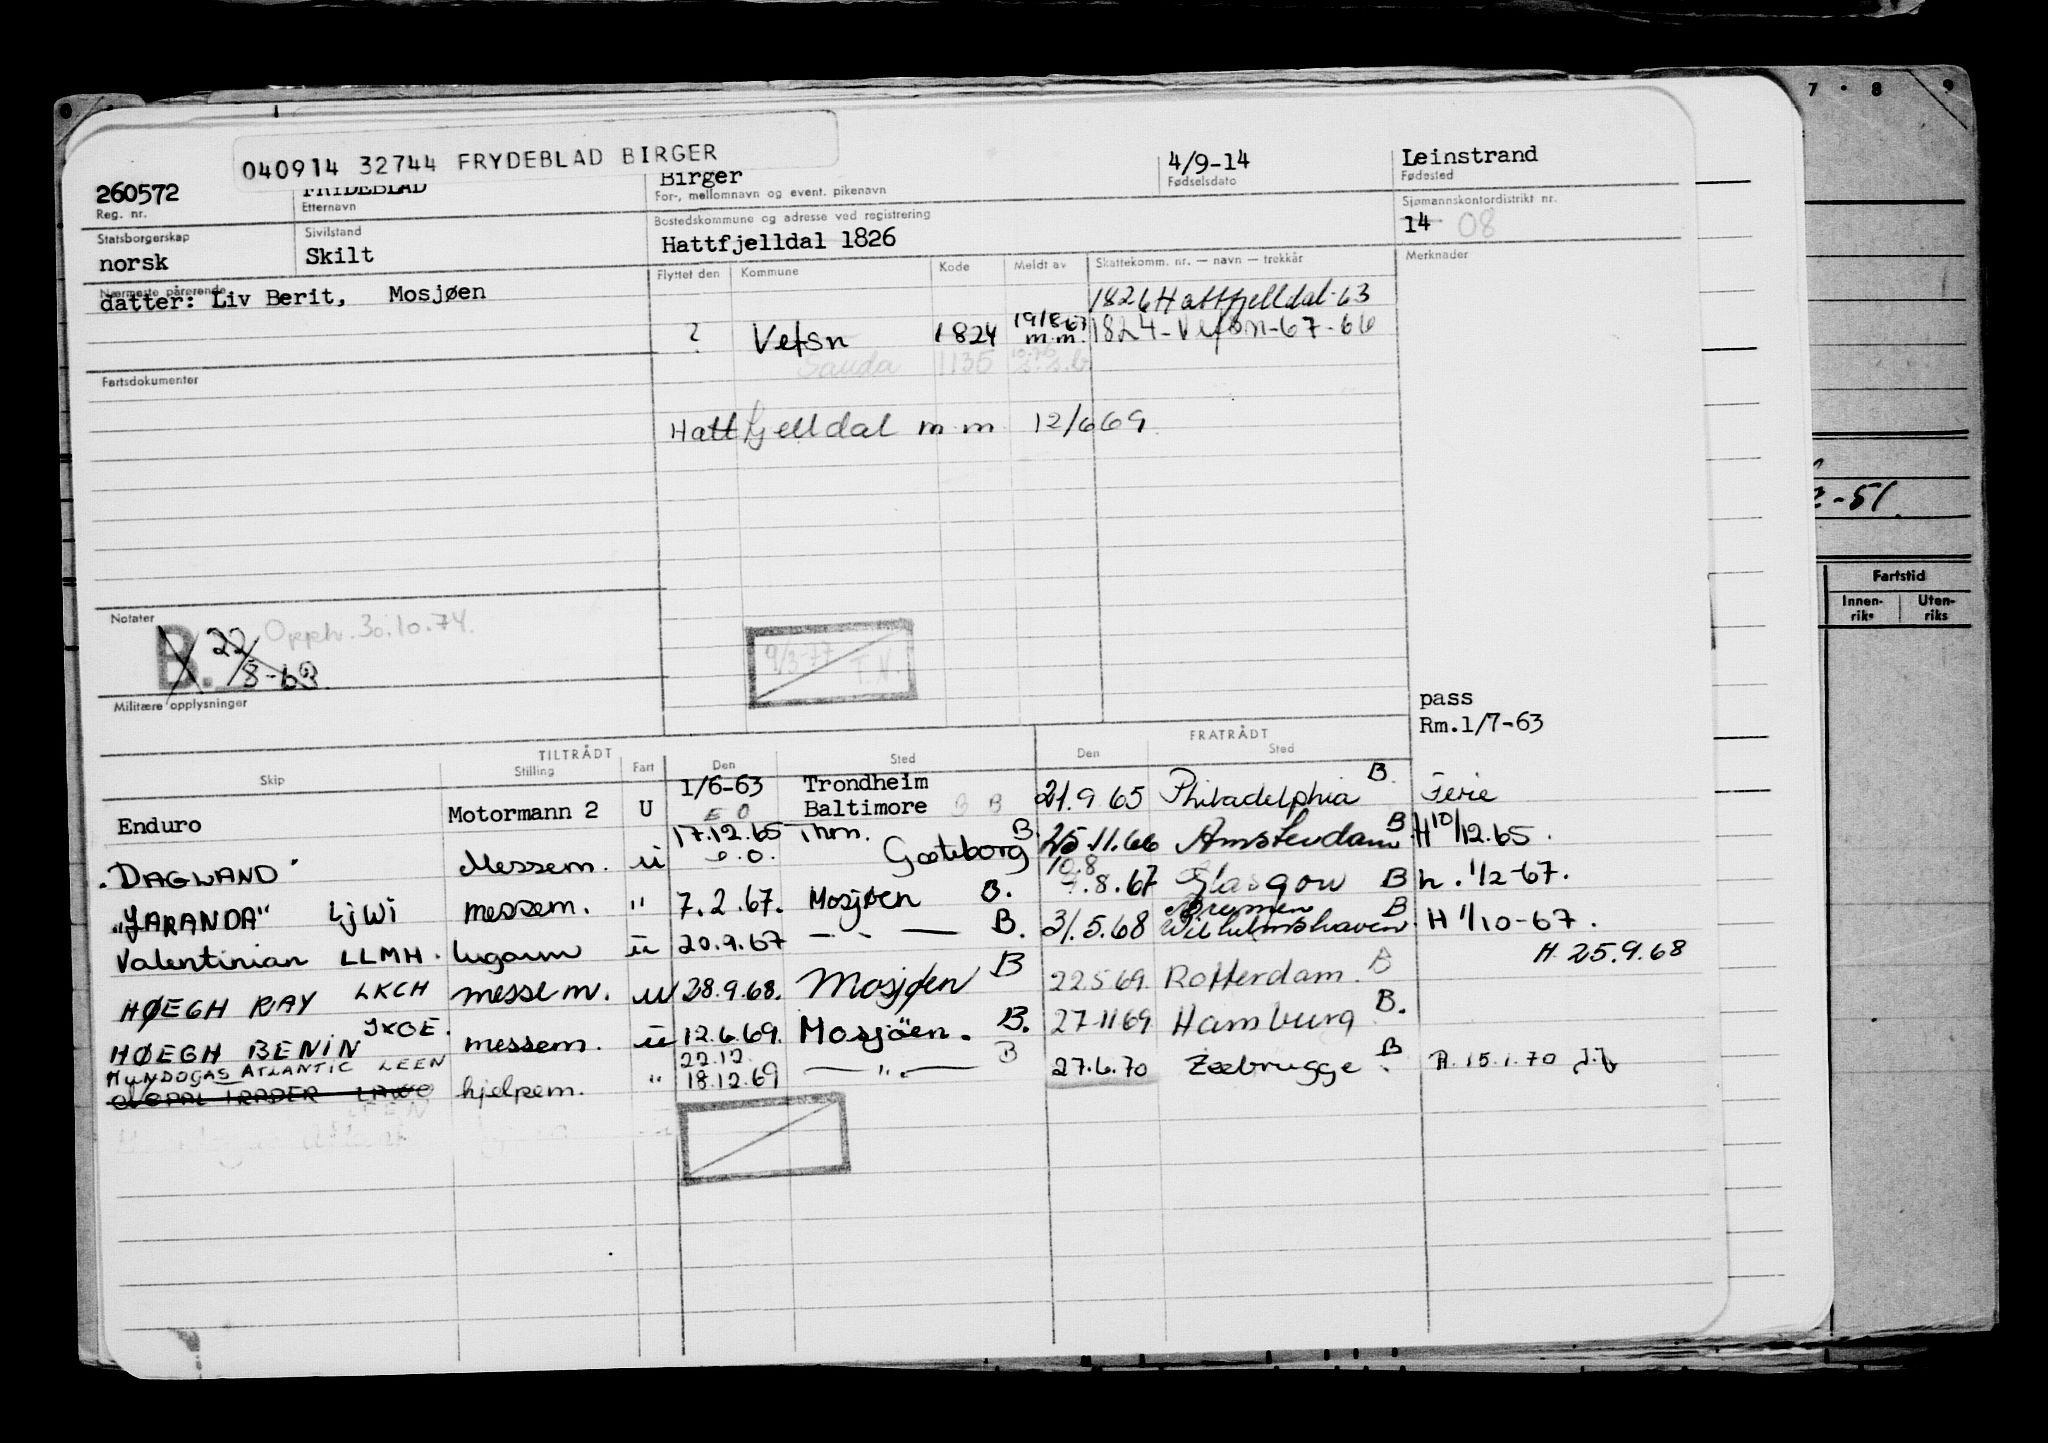 040914 32744 FRYDEBLAD BIRGER
260572 FRYDEBLAD Birger 4/9-14 Leinstrand
Reg. nr. Etternavn For-, mellomnavn og event. pikenavn Fødselsdato Fødested
Statsborgerskap Sivilstand Bostedskommune og adresse ved registrering Sjømannskontordistrikt nr.
norsk Skilt Hattfjelldal 1826 14 08
Nærmeste pårørende Flyttet den Kommune Kode Meldt av Skattekomm. nr. — navn — trekkår Merknader
datter: Liv Berit, Mosjøen 1826 Hattfjelldal-63
? Vefsn 1824 19/8-67 m.m. 1824-Vefsn-67-66
Sauda 1135
Fartsdokumenter
Hattfjelldal m m 12/6 69
2-51.
Fartstid
Innen-riks Uten-riks
Notater
B. 22/8-63 Opph. 30.10.74.
9/3-77 T.N.
Militære opplysninger
pass
Rm.1/7-63
TILTRÅDT FRATRÅDT
Skip Stilling Fart Den Sted Den Sted
Enduro Motormann 2 U 1/6-63 Trondheim Baltimore B B 21.9 65 Philadelphia B. Ferie
E O
"DAGLAND" Messem. u 17.12.65 Thm. Gøteborg B. 25.11.66 Amsterdam B. H 10/12.65.
e.o.
"JARANDA" LJWI messem. " 7.2.67. Mosjøen B. 10.8 .8.67 Glasgow B h. 1/2-67.
Valentinian LLMH. lugarm u 20.9.67 — - — B. 31.5.68 Bremen Wilhelmshaven B H 1/10-67.
HØEGH RAY LKCH messem. u 28.9.68. Mosjøen B 22.5 69. Rotterdam. B H. 25.9.68
HØEGH BENIN JXOE. messem. u 12.6.69. Mosjöen. B. 27-11 69 Hamburg B.
HUNDOGAS ATLANTIC LEEN 22.12
TRADER hjelpem. " 18.12.69 — " — B 27.6.70 Zeebrugge B. A. 15.1.70
7 · 8 9